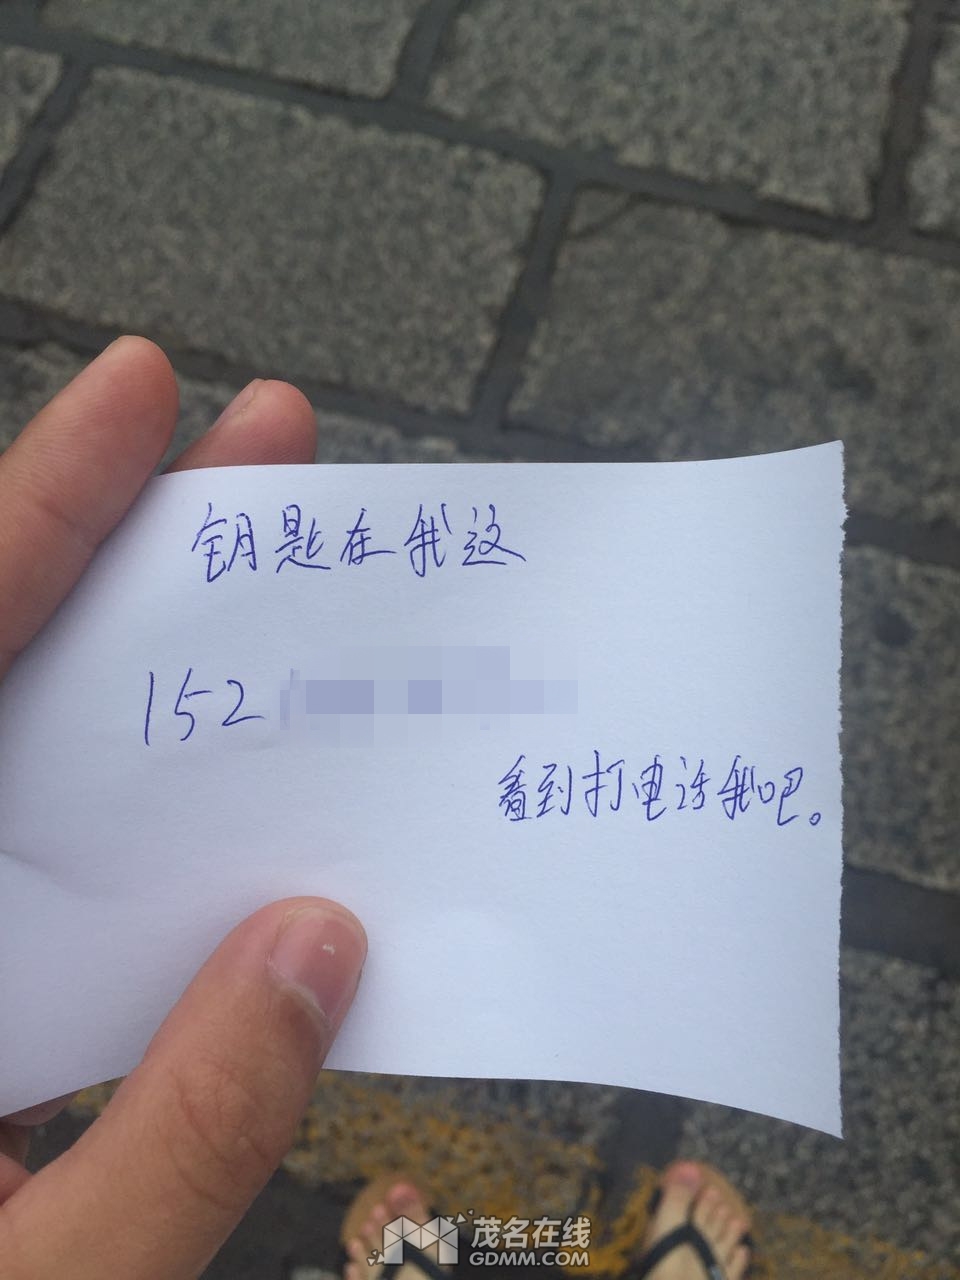 钥匙在我这
152
看到打电话我吧。
茂名在线
GDMM.COM